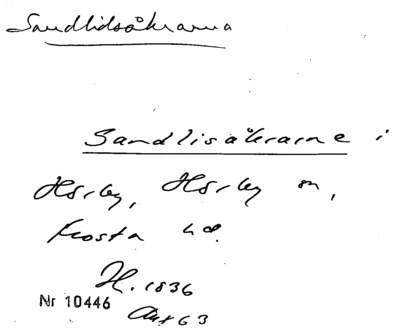 Sandlidsåkrarna
Sandlisåkrarne i
Hörby, Hörby sn,
Frosta hd.
H. 1836
Nr 10446
Akt 63